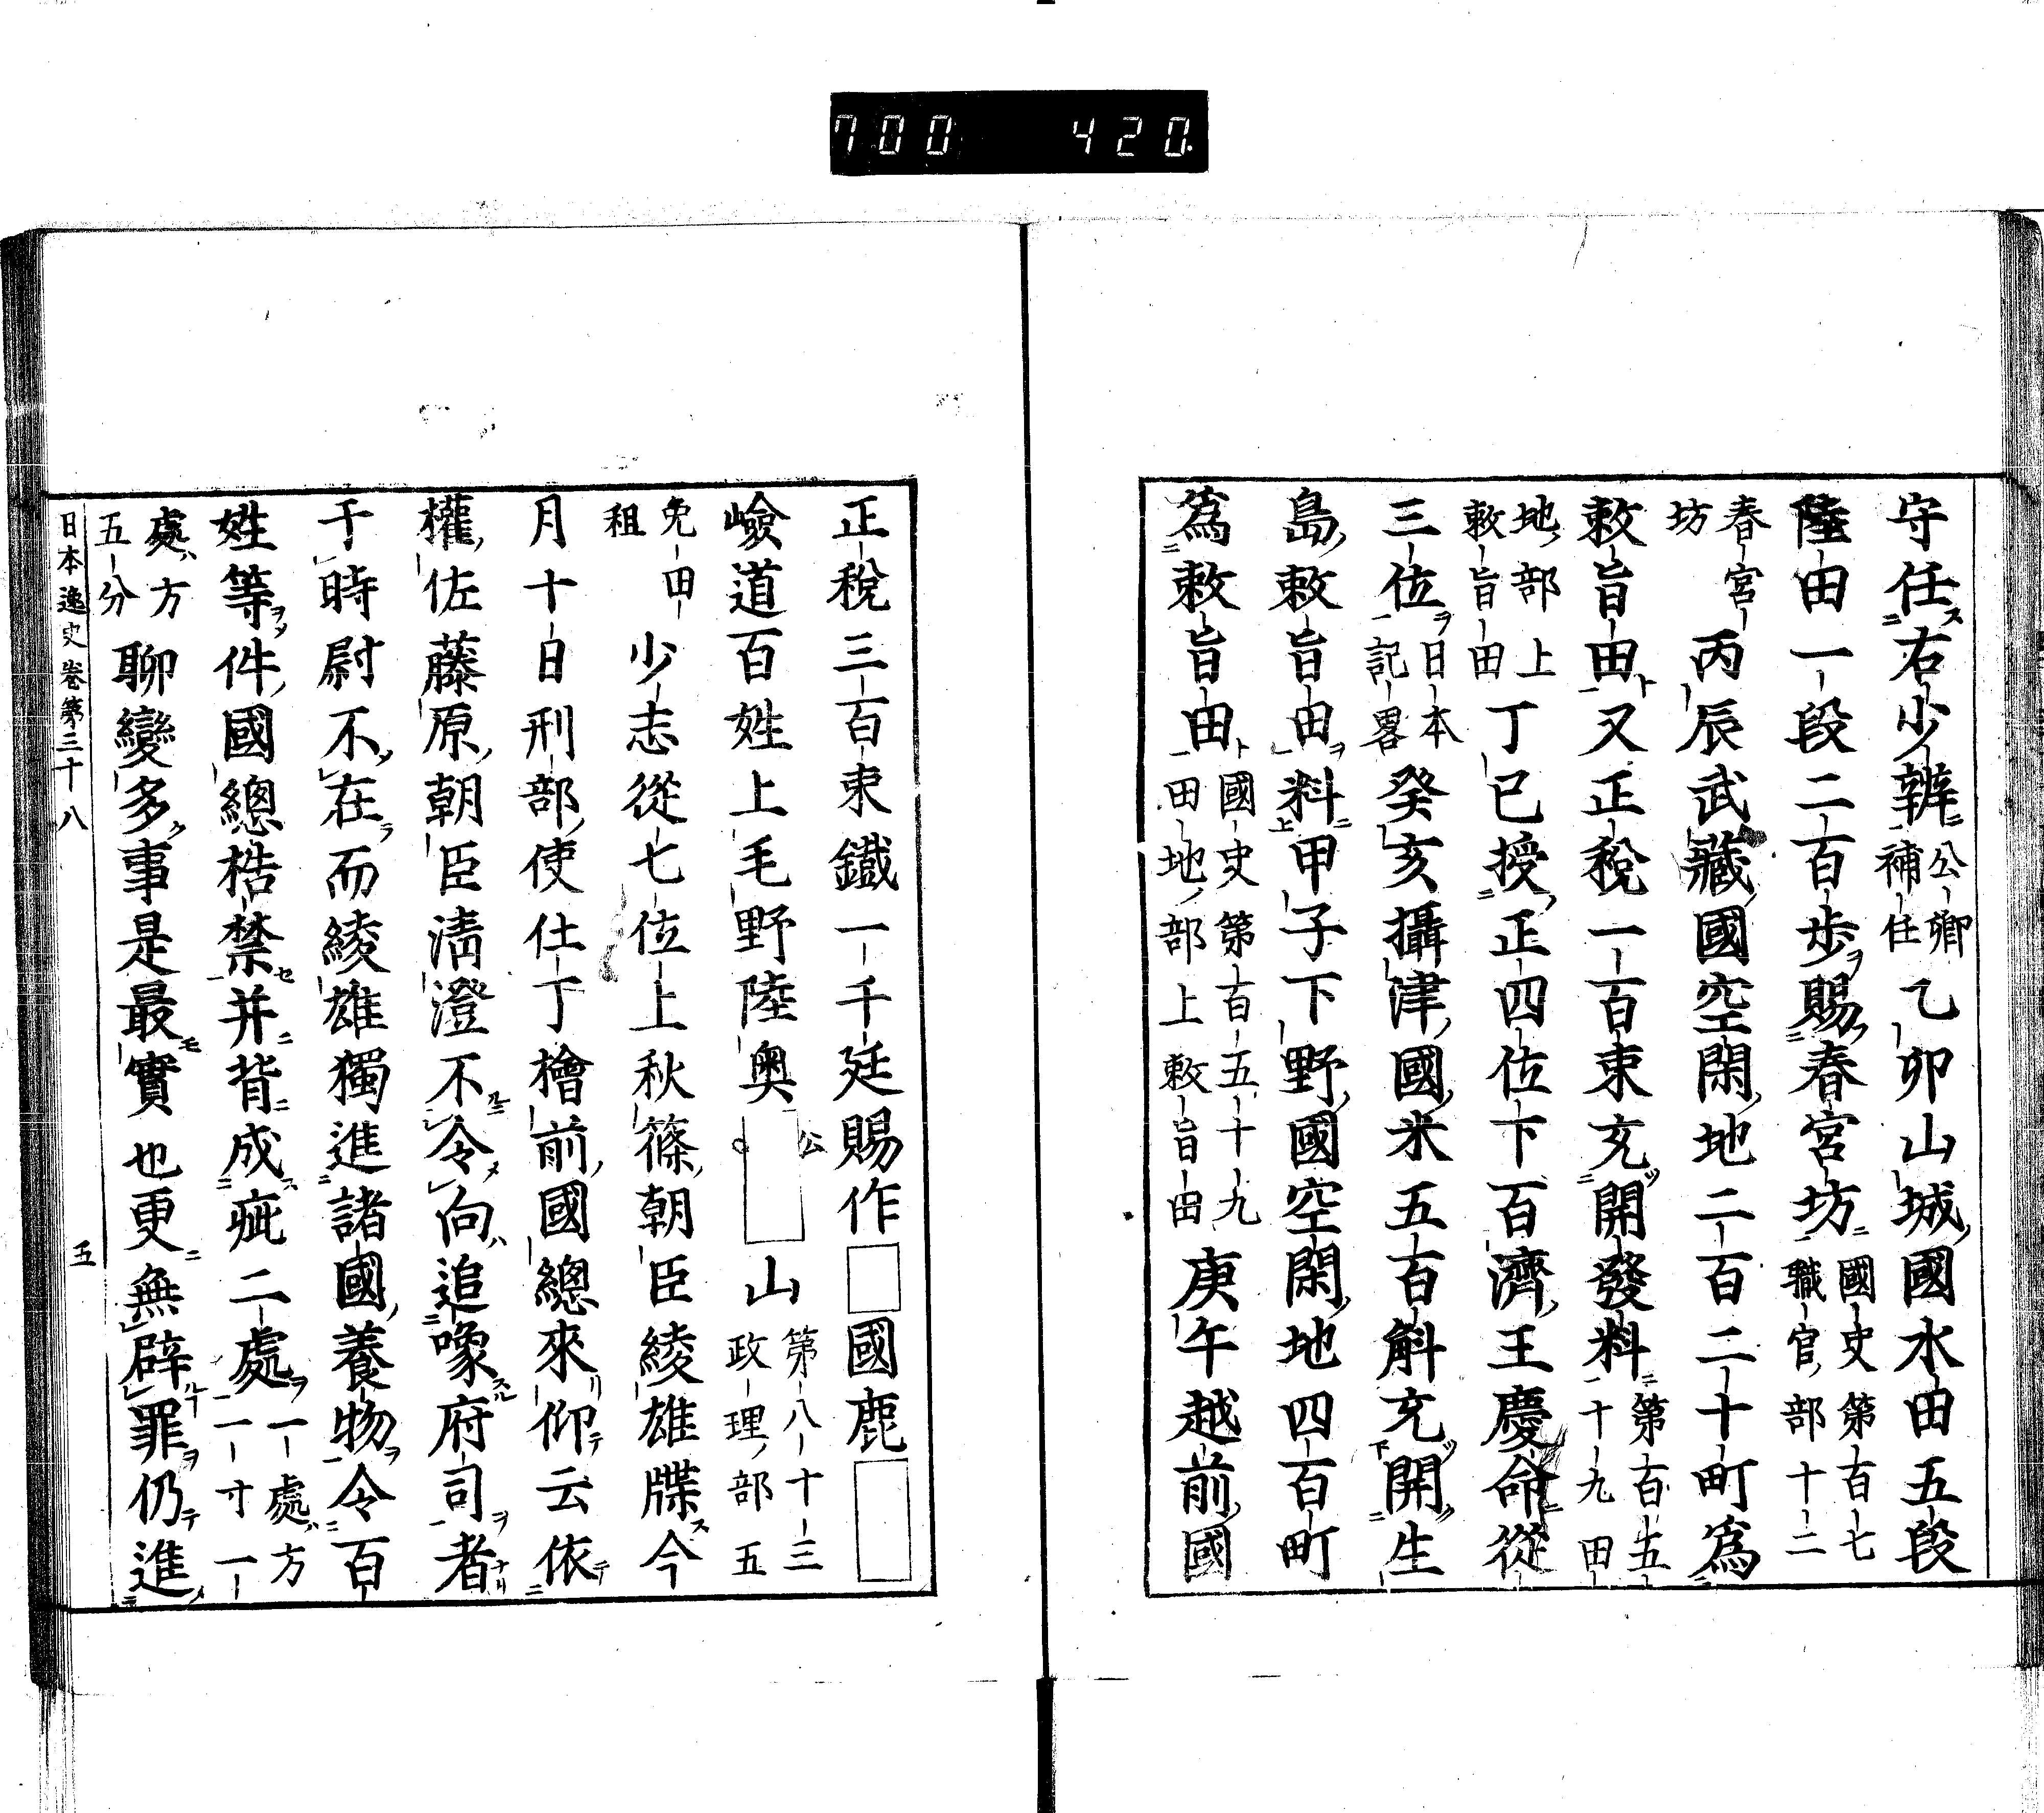 700 420
守任右少辨公卿補任乙卯山城國水田五段
陸田一段二百步賜春宮坊國史第百七職官部十二
春宮坊丙辰武藏國空閑地二百二十町爲
敕旨田又正稅一百束充開發料第百五十九田
地部上敕旨田丁巳授正四位下百濟王慶命從
三位日本記畧癸亥攝津國米五百斛充開生
島敕旨田料甲子下野國空閑地四百町
爲敕旨田國史第百五十九田地部上敕旨田庚午越前國
正稅三百束鐵一千廷賜作□國鹿□
嶮道百姓上毛野陸奧公□山第八十三政理部五
免田租少志從七位上秋篠朝臣綾雄牒今
月十日刑部使仕丁檜前國總來仰云依
權佐藤原朝臣清澄不令向追喚府司者
于時尉不在而綾雄獨進諸國養物令百
姓等件國總梏禁并背成疵二處一處方一寸一
處方五分聊變多事是最實也更無辟罪仍進
日本逸史卷第三十八 五